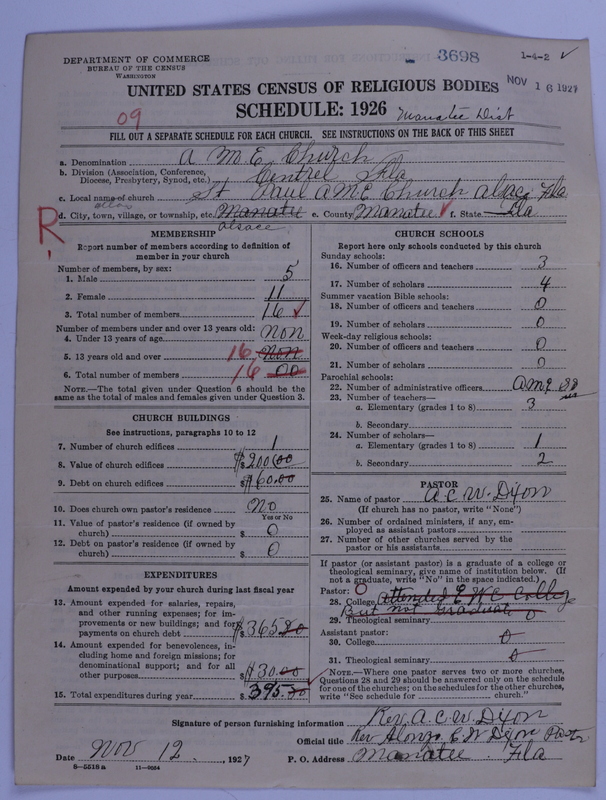 DEPARTMENT OF COMMERCE
BUREAU OF THE CENSUS
WASHINGTON
3698
1-4-2 ✓
UNITED STATES CENSUS OF RELIGIOUS BODIES
NOV 16 1927
SCHEDULE: 1926
09
Manatee Dist
FILL OUT A SEPARATE SCHEDULE FOR EACH CHURCH. SEE INSTRUCTIONS ON THE BACK OF THIS SHEET
a. Denomination A M E Church
b. Division (Association, Conference, Diocese, Presbytery, Synod, etc.) Centrel Fla
c. Local name of church St Paul AME Church alsac Fla
d. City, town, village, or township, etc. Manatee e. County Manatee ✓ f. State Fla
alsace
R.
MEMBERSHIP
Report number of members according to definition of member in your church
Number of members, by sex:
1. Male 5
2. Female 11
3. Total number of members 16 ✓
Number of members under and over 13 years old:
4. Under 13 years of age non
5. 13 years old and over 16 non
6. Total number of members 16 00
NOTE.—The total given under Question 6 should be the same as the total of males and females given under Question 3.
CHURCH BUILDINGS
See instructions, paragraphs 10 to 12
7. Number of church edifices 1
8. Value of church edifices $200.00
9. Debt on church edifices $60.00
10. Does church own pastor's residence No
Yes or No
11. Value of pastor's residence (if owned by church) $ 0
12. Debt on pastor's residence (if owned by church) $ 0
EXPENDITURES
Amount expended by your church during last fiscal year
13. Amount expended for salaries, repairs, and other running expenses; for improvements or new buildings; and for payments on church debt $365.20
14. Amount expended for benevolences, including home and foreign missions; for denominational support; and for all other purposes $30.00
15. Total expenditures during year $395.20
CHURCH SCHOOLS
Report here only schools conducted by this church
Sunday schools:
16. Number of officers and teachers 3
17. Number of scholars 4
Summer vacation Bible schools:
18. Number of officers and teachers 0
19. Number of scholars 0
Week-day religious schools:
20. Number of officers and teachers 0
21. Number of scholars 0
Parochial schools:
22. Number of administrative officers AME SS
23. Number of teachers—
a. Elementary (grades 1 to 8) 3
b. Secondary
24. Number of scholars—
a. Elementary (grades 1 to 8) 1
b. Secondary 2
PASTOR
25. Name of pastor A. C. W. Dixon
(If church has no pastor, write "None")
26. Number of ordained ministers, if any, employed as assistant pastors
27. Number of other churches served by the pastor or his assistants
If pastor (or assistant pastor) is a graduate of a college or theological seminary, give name of institution below. (If not a graduate, write "No" in the space indicated.)
Pastor: O
28. College attended E W C College
But not Graduate
29. Theological seminary 0
Assistant pastor:
30. College 0
31. Theological seminary 0
NOTE.—Where one pastor serves two or more churches, Questions 28 and 29 should be answered only on the schedule for one of the churches; on the schedules for the other churches, write "See schedule for church."
Signature of person furnishing information Rev. A. C. W. Dixon
Official title Rev Alonzo C W Dixon Pastor
Date Nov 12, 1927 P. O. Address Manatee Fla
8—5518 a 11—9664